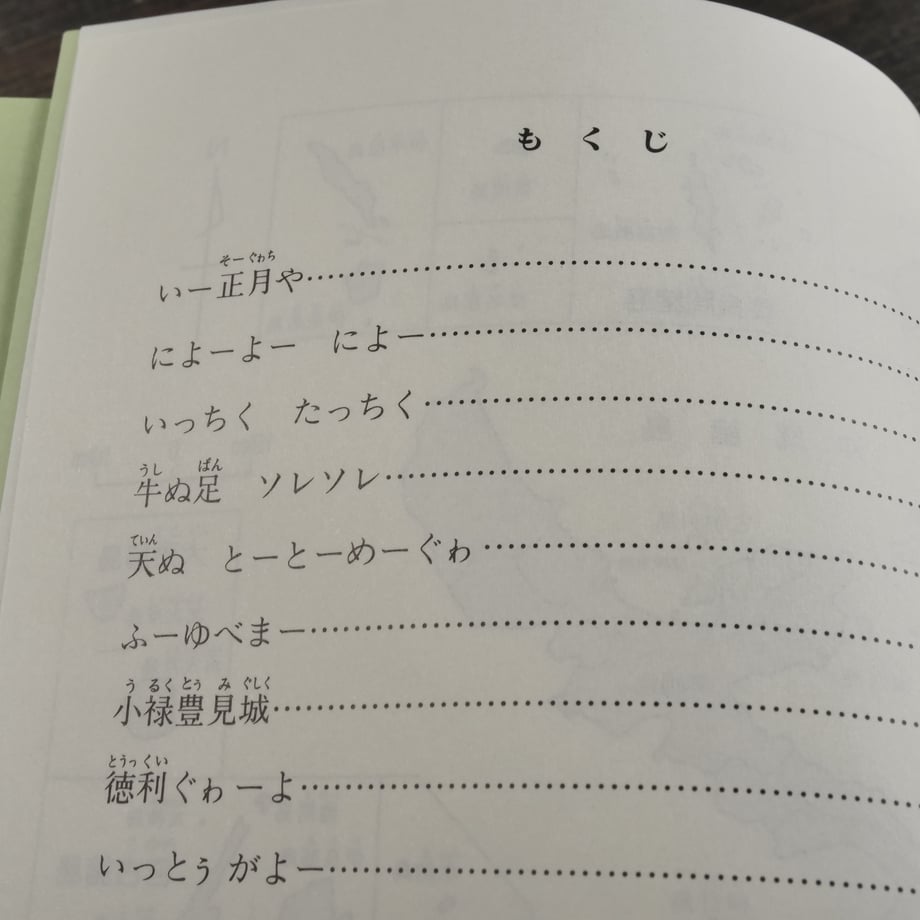 もくじ
そーぐわち
いー正月や……………………
によーよー　によー……………………
いっちく　たっちく……………………
うし　ばん
牛ぬ足　ソレソレ……………………
てぃん
天ぬ　とーとーめーぐゎ……………………
ふーゆべまー……………………
う るく とぅ み ぐしく
小禄豊見城……………………
とぅっくい
徳利ぐゎーよ……………………
いっとぅがよー……………………